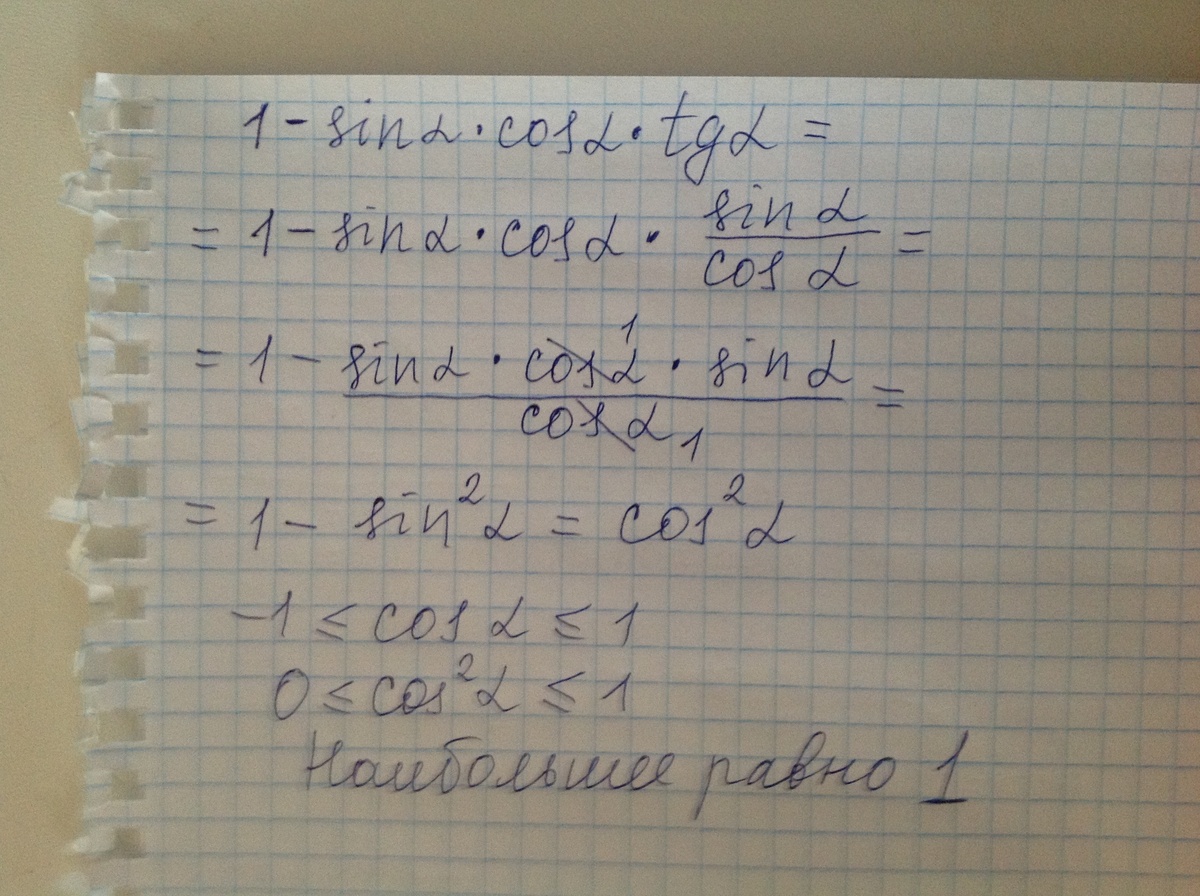 1 - sinα · cosα · tgα =
= 1 - sinα · cosα · sinα/cosα =
= 1 - sinα · cosα¹ · sinα / cosα₁ =
= 1 - sin²α = cos²α
-1 ≤ cosα ≤ 1
0 ≤ cos²α ≤ 1
Наибольшее равно 1